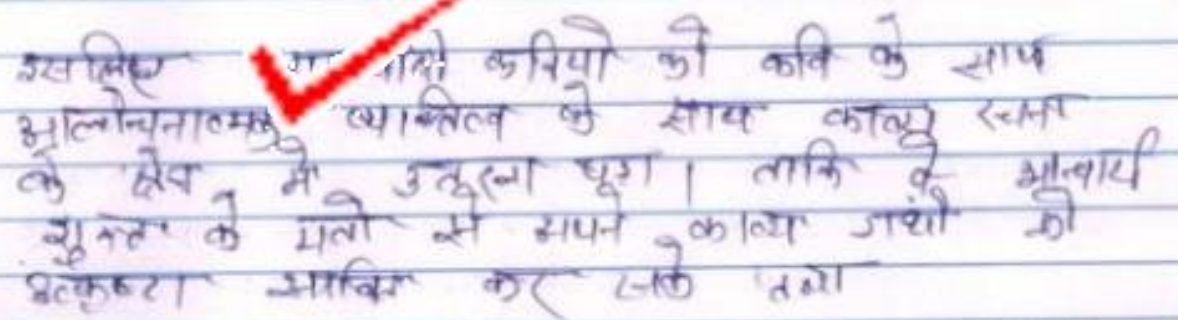 इसलिए वादी कवियो को कवि के साथ
आलोचनात्मक व्यक्तित्व के साथ काव्य रचना
के क्षेत्र मे उतरना पड़ा। ताकि वे आचार्य
शुक्ल के मतो से अपने काव्य ग्रंथो को
उत्कृष्टा साबित कर सके तथा